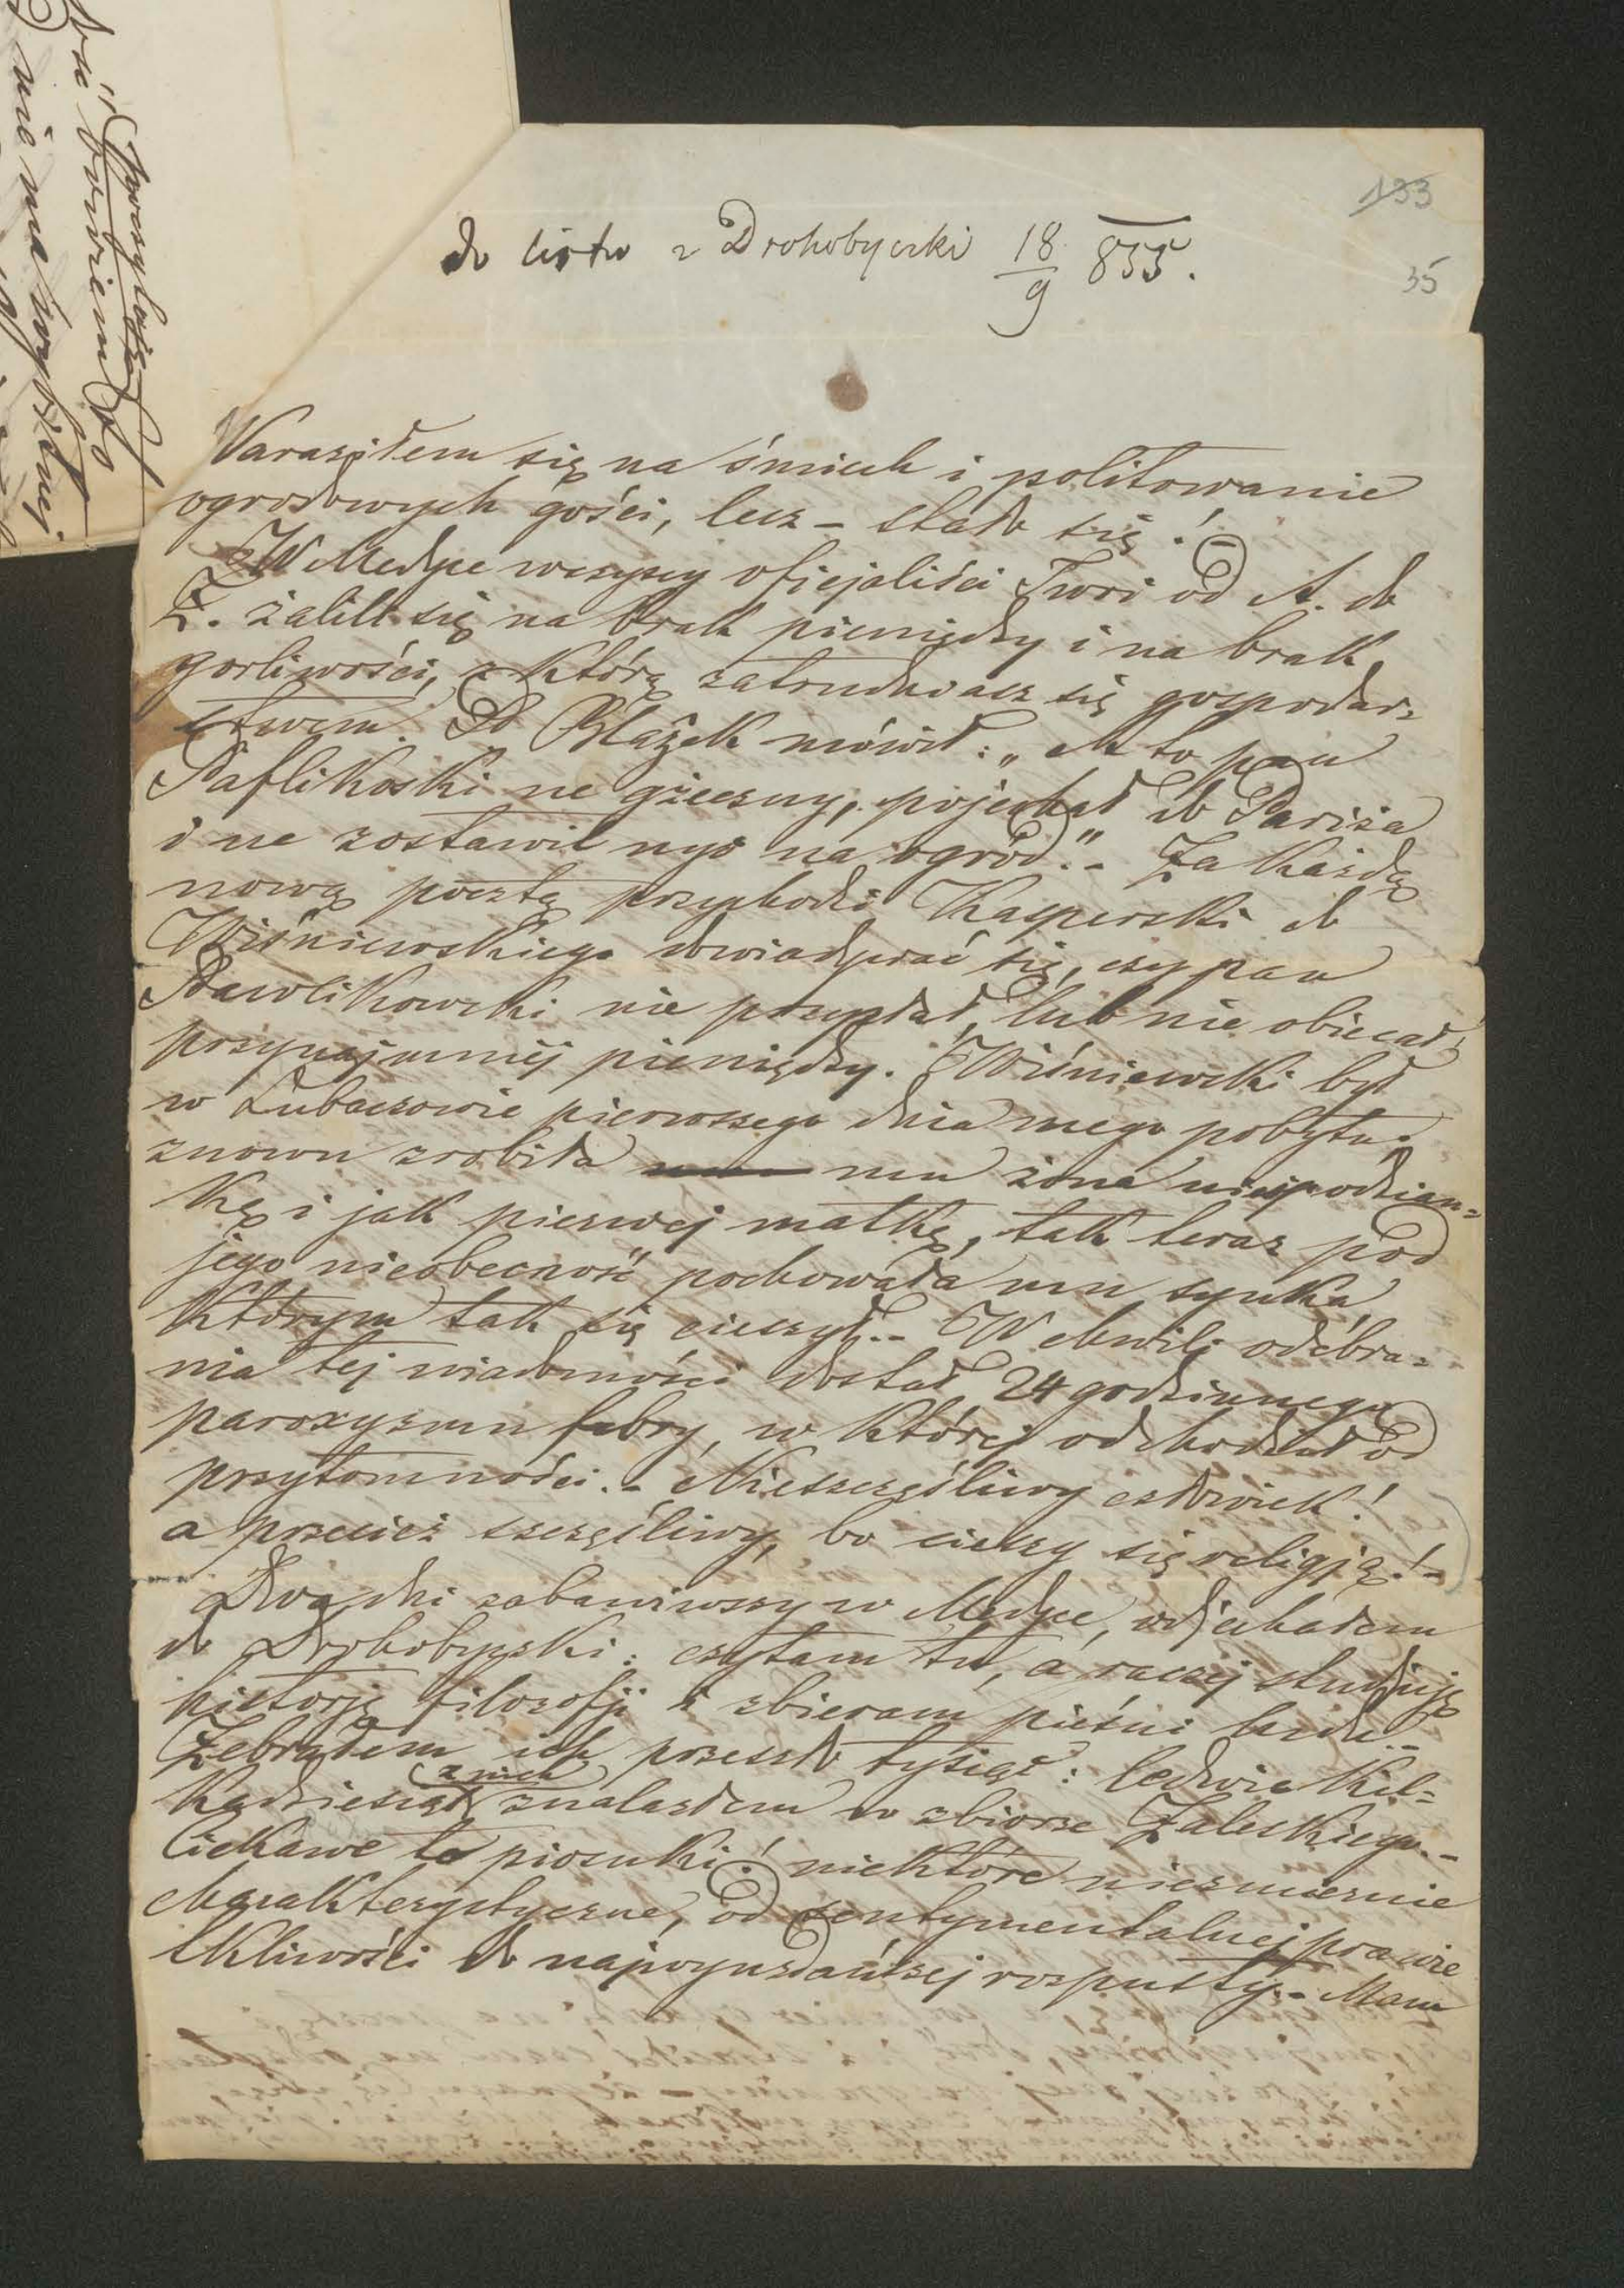 133
do listu z Drohobyczki 18/9 855.
35
Naraziłem się na śmiech i politowanie
ogrodowych gości, lecz – stało się! –
W Medyce wszyscy oficjaliści Twoi od A. do
Z. żalili się na brak pieniędzy i na brak
gorliwości, z którą zatrudniasz się gospodar=
stwem. P. Błażek mówił: „A to pan
Paflikoski ne grzeczny, pojechał do Pariża
i ne zostawil nyc na ogród." – Za każdą
nową pocztą przychodzi Kasperski do
Wiśniewskiego dowiadywać się, czy pan
Pawlikowski nie przysłał, lub nie obiecał
przynajmniej pieniędzy. Wiśniewski był
w Lubaczowie pierwszego dnia mego pobytu;
znowu zrobiła mu żona niespodzian=
kę i jak pierwej matkę, tak teraz pod
jego nieobecność pochowała mu synka,
którym tak się cieszył. – W chwili odebra=
nia tej wiadomości dostał 24 godzinnego
paroxyzmu febry, w której odchodził od
przytomności. – Nieszczęśliwy człowiek!
a przecież szczęśliwy, bo cieszy się religją! –
Dwa dni zabawiwszy w Medyce, odjechałem
do Drohobyczki: czytam tu, a raczej studjuję
historję filozofji i zbieram pieśni ludu. –
Zebrałem ich przeszło tysiąc: ledwie kil=
kadziesiąt z nich znalazłem w zbiorze Zaleskiego. –
Ciekawe te piosnki! niektóre niezmiernie
charakterystyczne, od sentymentalnej prawie
tkliwości do najwyuzdańszej rozpusty. – Mam